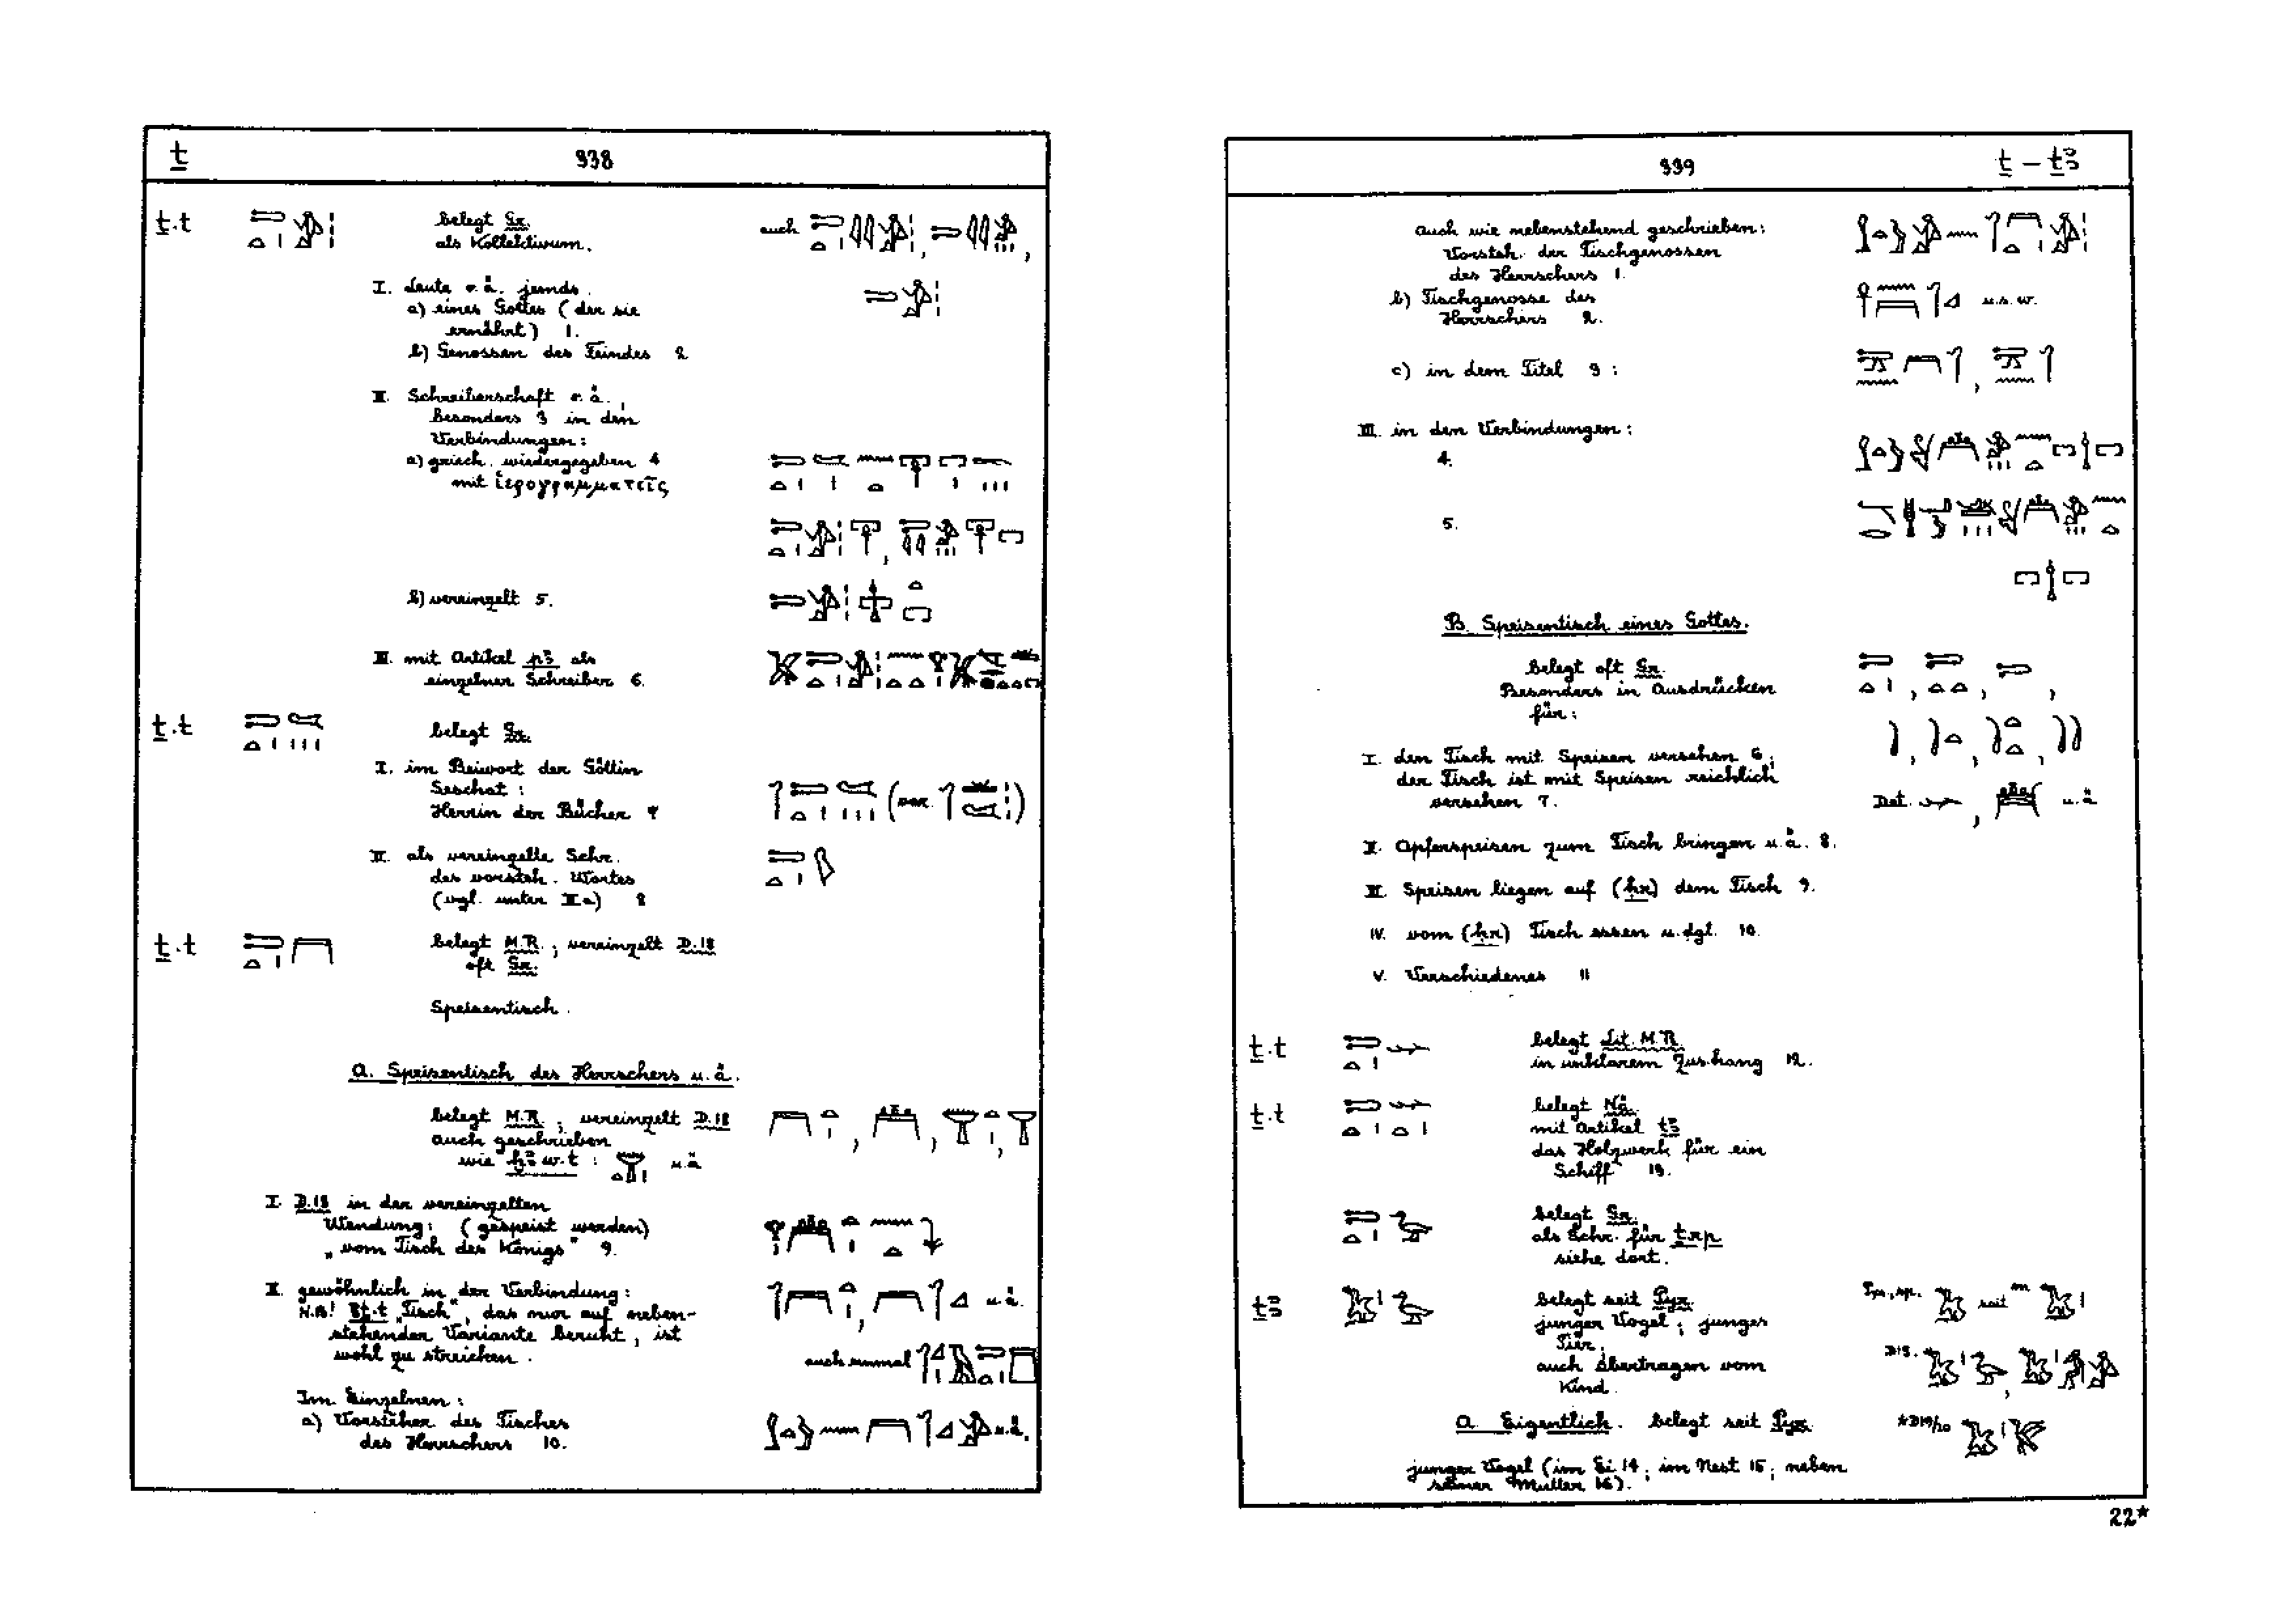 ṯ 338
ṯ.t belegt Gr. auch
als Kollektivum.
I. Leute o.ä. jemds.
a) eines Gottes (der sie
ernährt) 1.
b) Genossen des Feindes 2
II. Schreiberschaft o.ä.,
besonders 3 in den
Verbindungen:
a) griech. wiedergegeben 4
mit ἱερογραμματεῖς
b) vereinzelt 5.
III. mit Artikel pꜣ als
einzelner Schreiber 6.
ṯ.t belegt Gr.
I. im Beiwort der Göttin
Seschat:
Herrin der Bücher 7 (var. )
II. als vereinzelte Schr.
des vorsteh. Wortes
(vgl. unter IIa) 8
ṯ.t belegt M.R.; vereinzelt D.18
oft Gr.
Speisentisch.
A. Speisentisch des Herrschers u.ä.
belegt M.R.; vereinzelt D.18
auch geschrieben
wie ḫꜣw.t: u.ä
I. D.18 in der vereinzelten
Wendung: (gespeist werden)
„vom Tisch des Königs" 9.
II. gewöhnlich in der Verbindung: u.ä.
N.B! "Tisch", das nur auf neben-
stehender Variante beruht, ist
wohl zu streichen. auch einmal
Im Einzelnen:
a) Vorsteher des Tisches
des Herrschers 10. u.ä.
339 ṯ – ṯꜣ
auch wie nebenstehend geschrieben:
Vorsteh. der Tischgenossen
des Herrschers 1.
b) Tischgenosse des
Herrschers 2. u.s.w.
c) in dem Titel 3:
III. in den Verbindungen:
4.
5.
B. Speisentisch eines Gottes.
belegt oft Gr.
Besonders in Ausdrücken
für:
I. den Tisch mit Speisen versehen 6;
der Tisch ist mit Speisen reichlich
versehen 7. Det. u.ä
II. Opferspeisen zum Tisch bringen u.ä. 8.
III. Speisen liegen auf (ḥr) dem Tisch 9.
IV. vom (ḥr) Tisch essen u.dgl. 10.
V. Verschiedenes 11
ṯ.t belegt Lit. M.R.
in unklarem Zushang 12.
ṯ.t belegt Nä.
mit Artikel tꜣ
das Holzwerk für ein
Schiff 13.
belegt Gr.
als Schr. für ṯrp
siehe dort.
ṯꜣ belegt seit Pyr. Pyr., sp. seit
junger Vogel; junges
Tier;
auch übertragen vom D18.
Kind.
A. Eigentlich. belegt seit Pyr. *D19/20
junger Vogel (im Ei 14; im Nest 15; neben
seiner Mutter 16).
22*